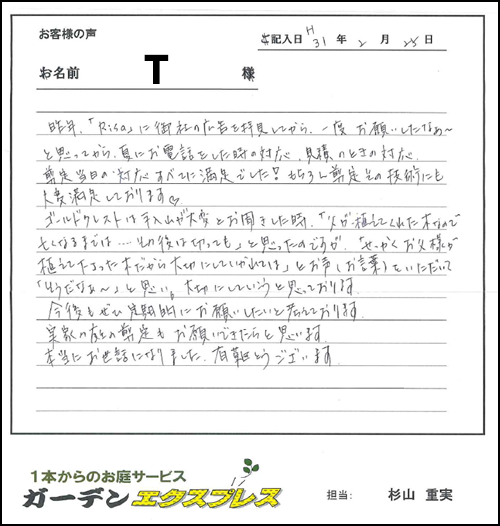 お客様の声
ご記入日 H31年 2月 25日
お名前 T 様
昨年、「Risa」に御社の広告を拝見してから、一度お願いしたなぁ〜
と思ってから、夏にお電話をした時の対応、見積りのときの対応
剪定当日の対応すべてに満足でした！もちろん剪定その技術にも
大変満足しております♡
ゴールドクレストは手入れが大変とお聞きした時、「父が植えてくれた木なので
亡くなるまでは……その後は切っても」と思ったのですが、「せっかくお父様が
植えて下さった木だから大切にしていかれては」とお声(お言葉)をいただいて
「そうだなぁ〜」と思い。大切にしていこうと思っております。
今後もぜひ定期的にお願いしたいと考えております。
実家の庭の剪定もお願いできたらと思います
本当にお世話になりました。有難とうございます
1本からのお庭サービス
ガーデンエクスプレス
担当: 杉山 重実